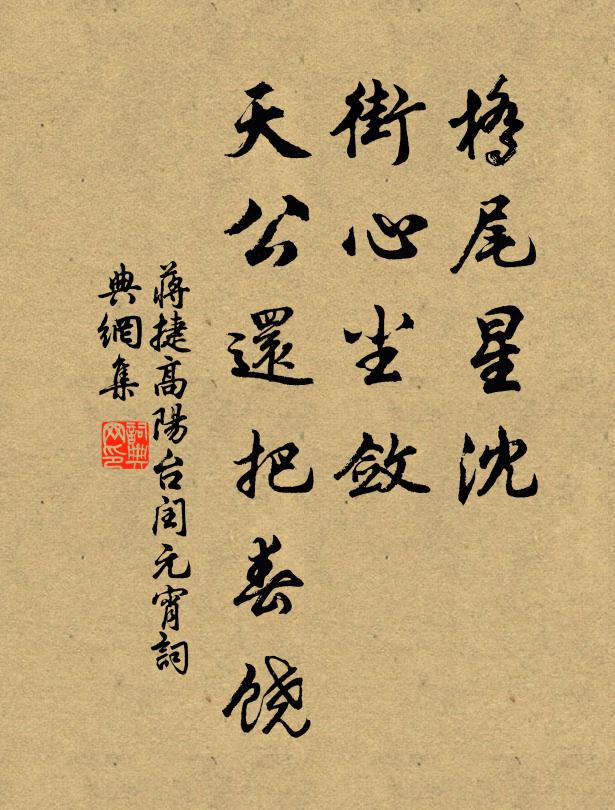 橋尾星沈
街心尘斂
天公還把春饶
蔣捷高陽台閏元宵詞
典網集
詞典网印